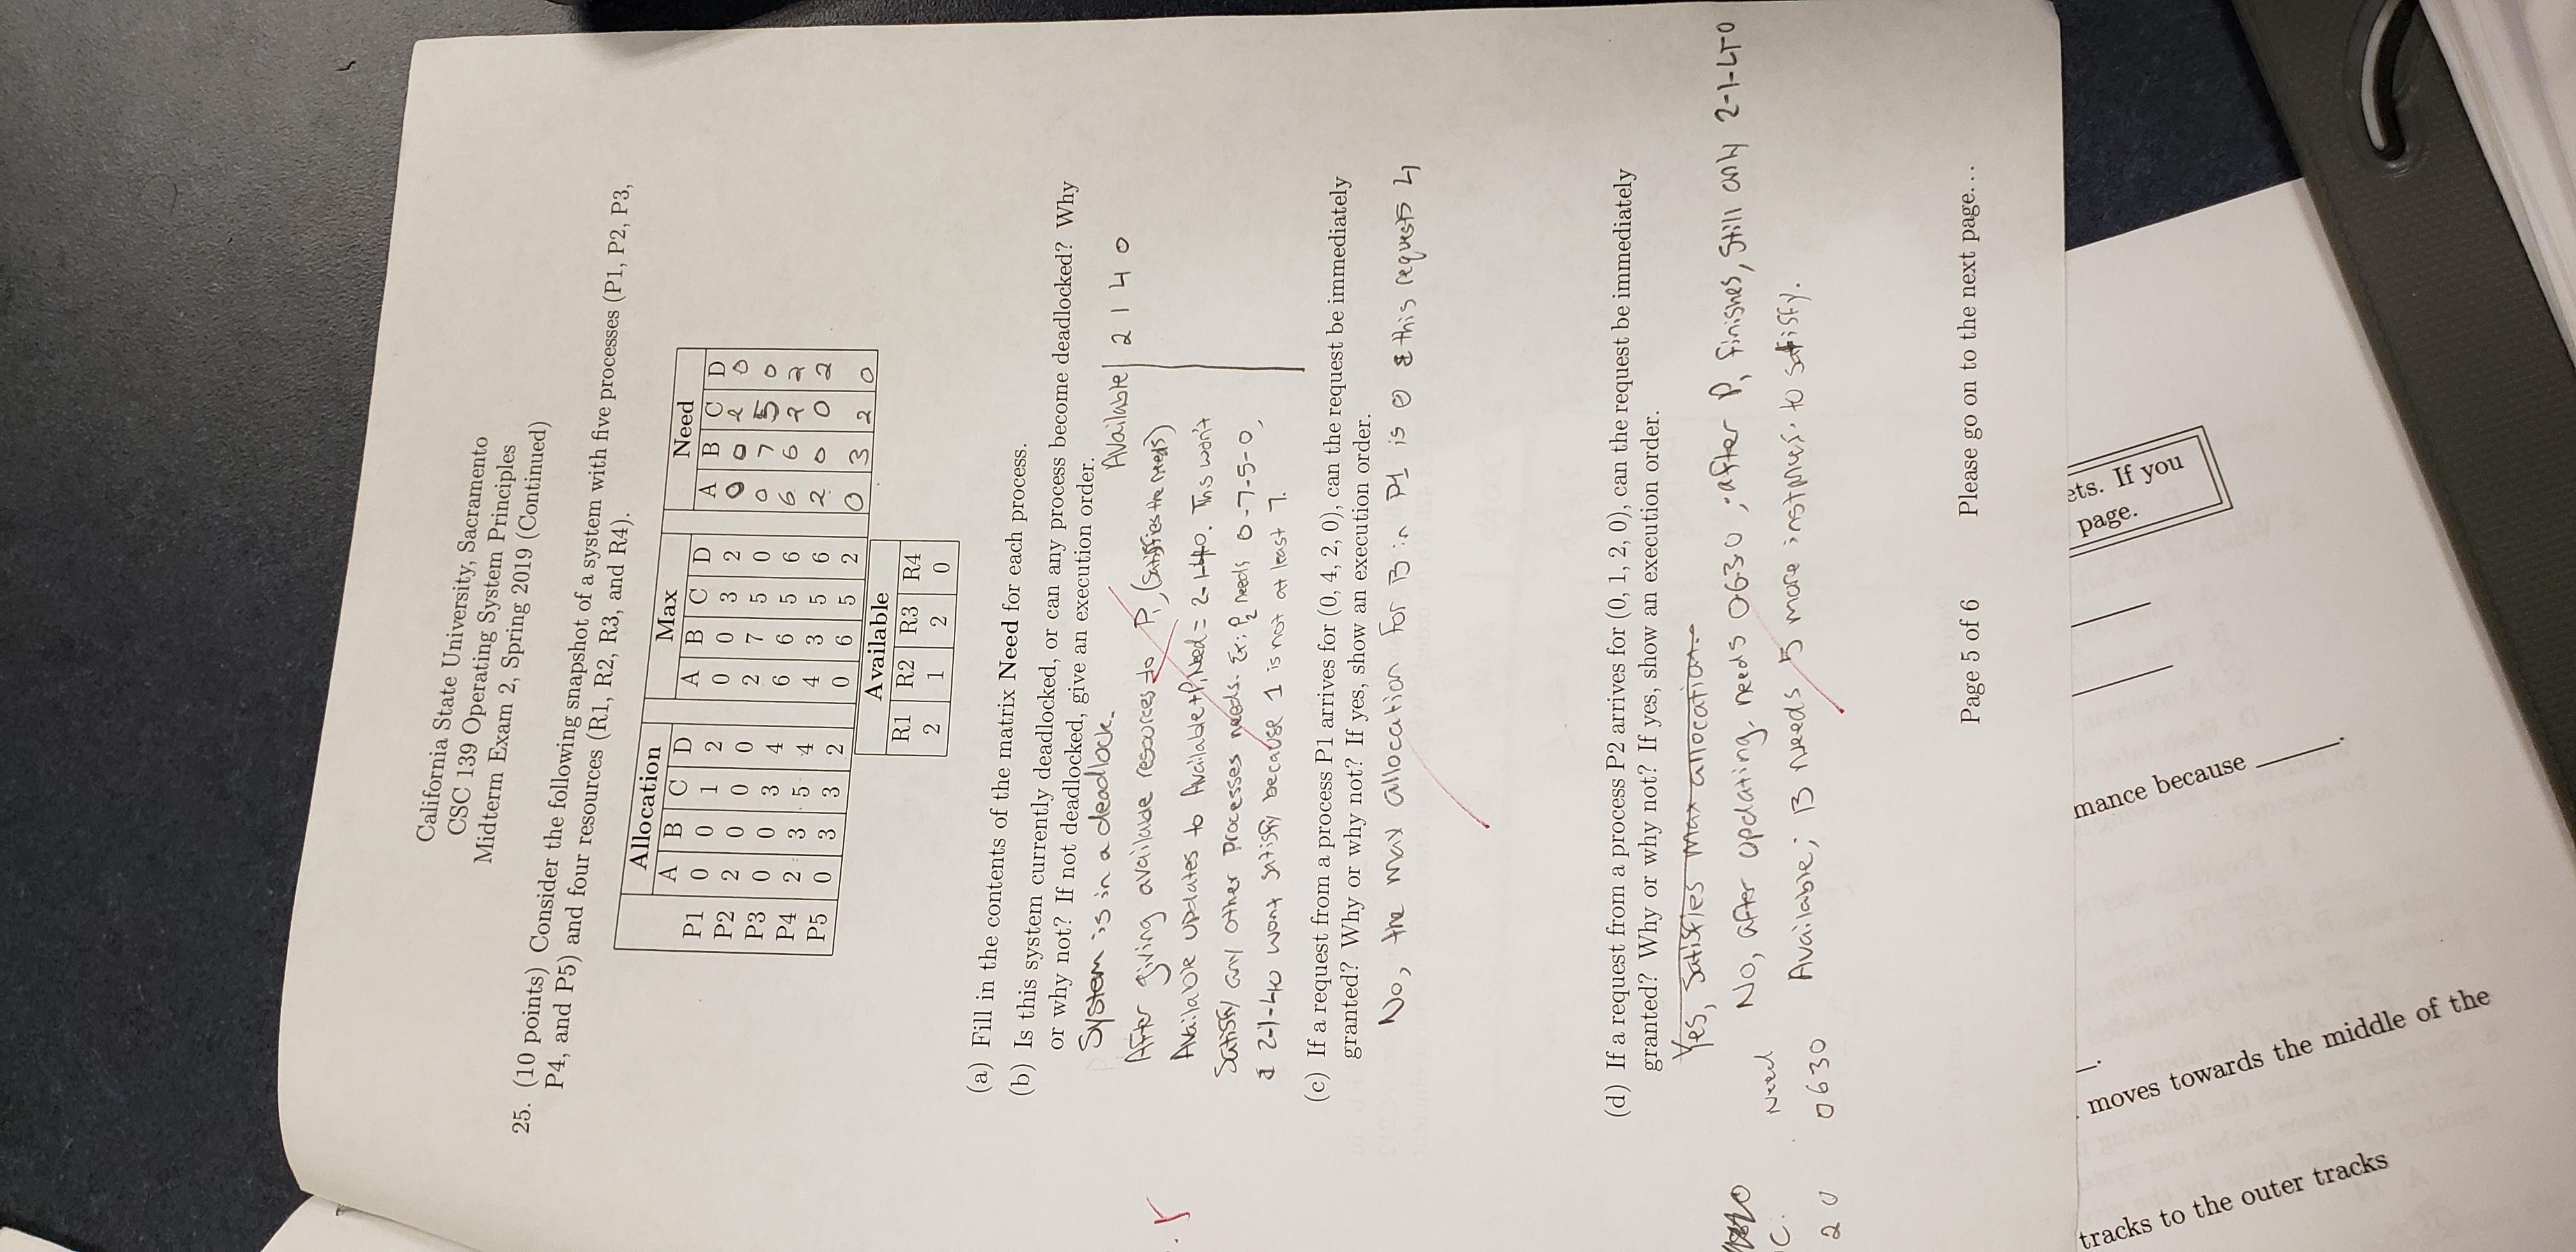 California State University, Sacramento
CSC 139 Operating System Principles
Midterm Exam 2, Spring 2019 (Continued)
25. (10 points) Consider the following snapshot of a system with five processes (P1, P2, P3,
P4, and P5) and four resources (R1, R2, R3, and R4).
Allocation Max Need
A B C D A B C D A B C D
P1 0 0 1 2 0 0 3 2 0 0 2 0
P2 2 0 0 0 2 7 5 0 0 7 5 0
P3 0 0 3 4 6 6 5 6 6 6 2 2
P4 2 3 5 4 4 3 5 6 2 0 0 2
P5 0 3 3 2 0 6 5 2 0 3 2 0
Available
R1 R2 R3 R4
2 1 2 0
(a) Fill in the contents of the matrix Need for each process.
(b) Is this system currently deadlocked, or can any process become deadlocked? Why
or why not? If not deadlocked, give an execution order.
System is in a deadlock.
Available 2 1 4 0
After giving available resources to P1, (Satisfies the needs)
Available updates to Available + P1 Need = 2-1-4-0. This won't
Satisfy any other processes needs. Ex: P2 needs 0-7-5-0,
& 2-1-4-0 wont satisfy because 1 is not at least 7.
(c) If a request from a process P1 arrives for (0, 4, 2, 0), can the request be immediately
granted? Why or why not? If yes, show an execution order.
No, the max allocation for B in P1 is 0 & this requests 4
(d) If a request from a process P2 arrives for (0, 1, 2, 0), can the request be immediately
granted? Why or why not? If yes, show an execution order.
Yes, Satisfies max allocation.
No, after updating, needs 0630; after P1 finishes, still only 2-1-4-0
Need
C.
Available; B needs 5 more instances to satisfy.
2 0 0630
Page 5 of 6 Please go on to the next page...
ets. If you
page.
mance because ____.
moves towards the middle of the
tracks to the outer tracks